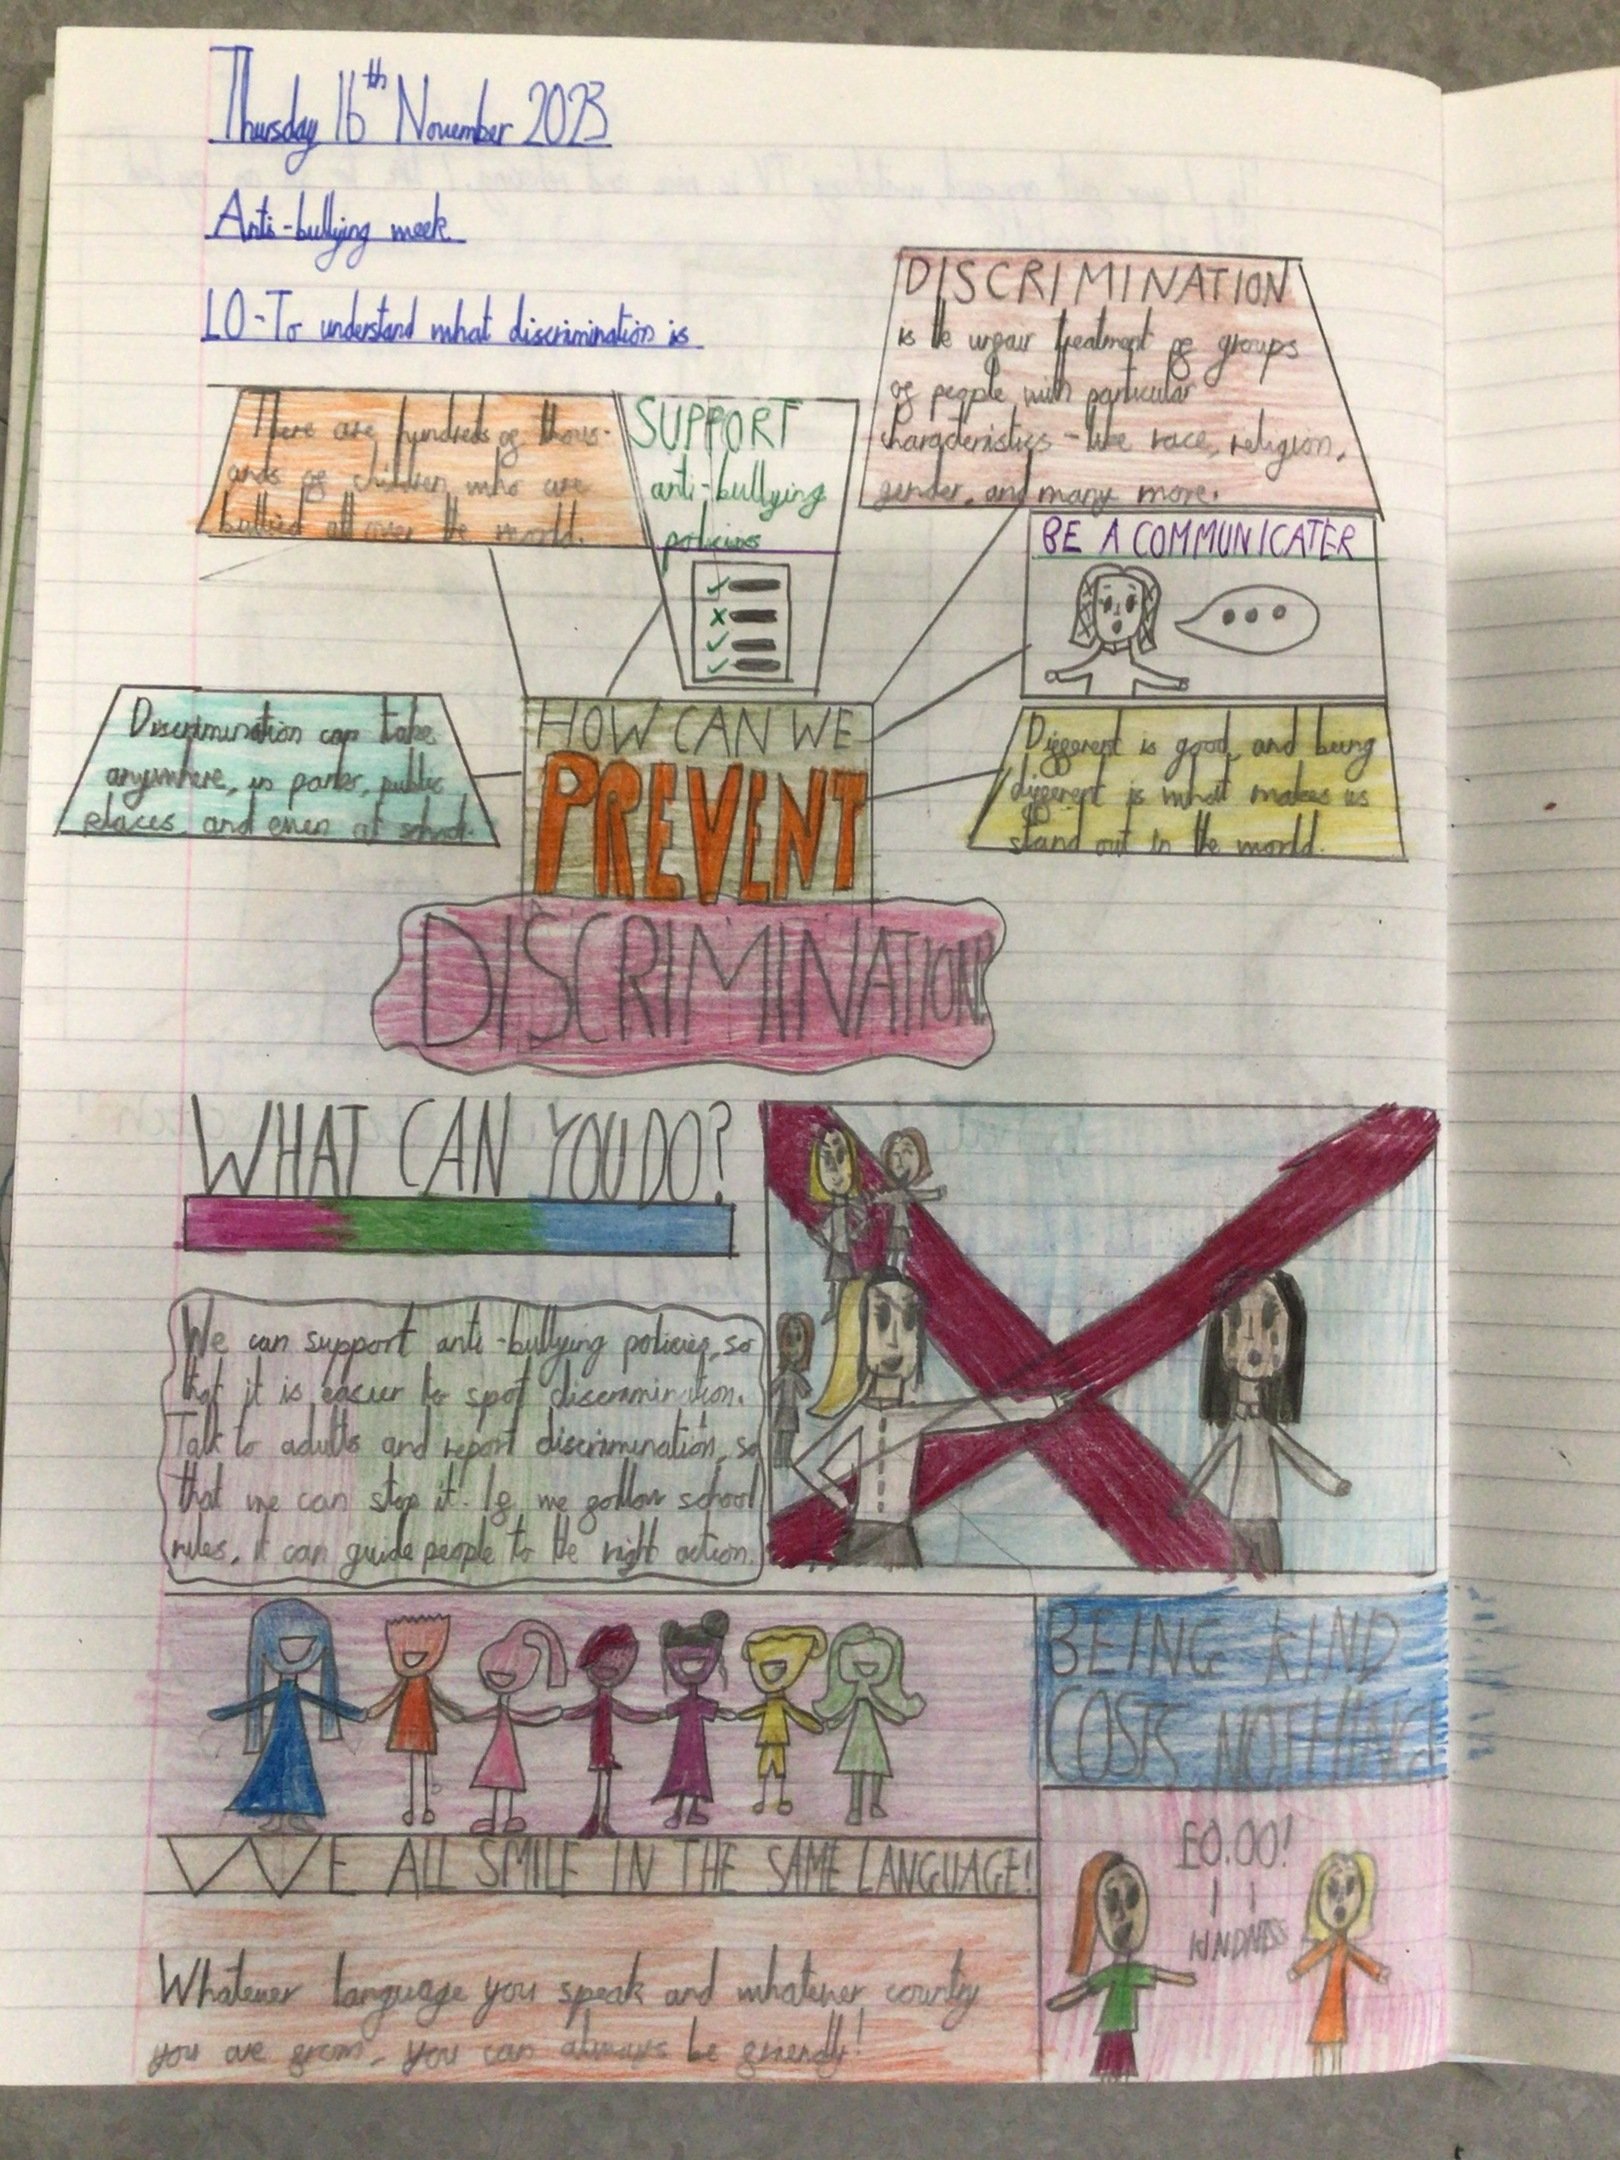 Thursday 16th November 2023
Anti-bullying week
LO-To understand what discrimination is
There are hundreds of thous-
ands of children who are
bullied all over the world.
SUPPORT
anti-bullying
policies
DISCRIMINATION
is the unfair treatment of groups
of people with particular
characteristics - like race, religion,
gender, and many more.
BE A COMMUNICATER
...
Discrimination can take
anywhere, in parks, public
places, and even at school.
HOW CAN WE
PREVENT
DISCRIMINATION?
Different is good, and being
different is what makes us
stand out in the world.
WHAT CAN YOU DO?
We can support anti-bullying policies, so
that it is easier to spot discrimination.
Talk to adults and report discrimination, so
that we can stop it. If we follow school
rules, it can guide people to the right action.
WE ALL SMILE IN THE SAME LANGUAGE!
Whatever language you speak and whatever country
you are from, you can always be friendly!
BEING KIND
COSTS NOTHING
£0.00!
KINDNESS